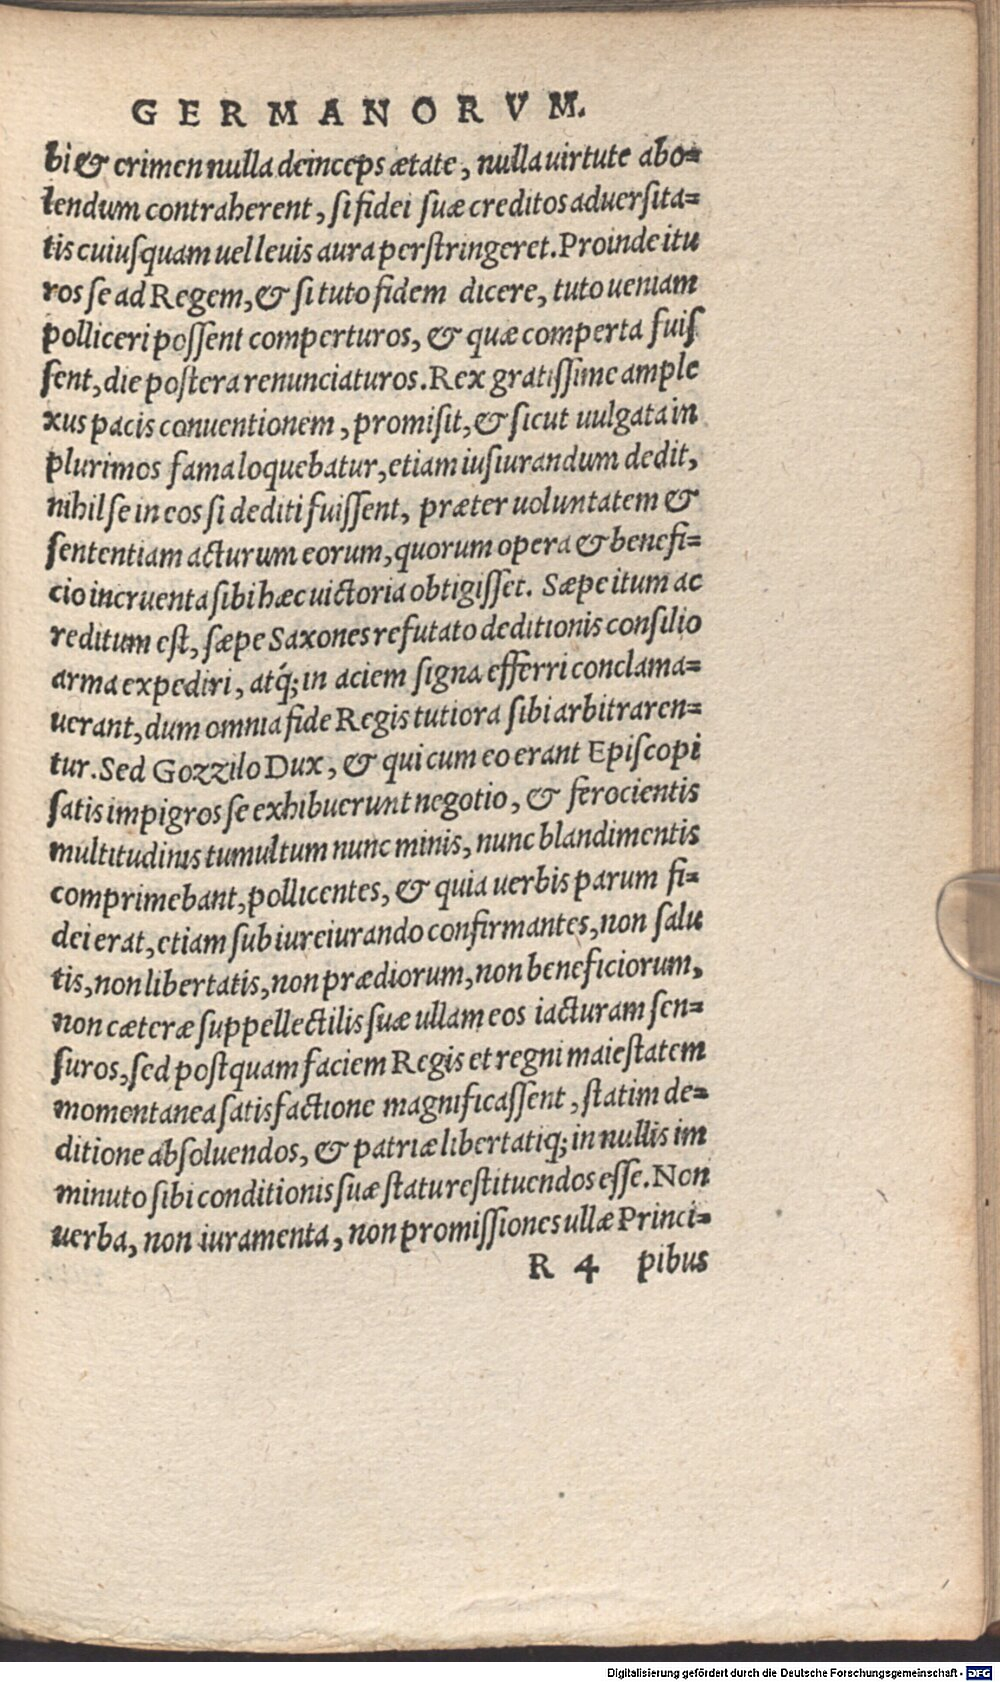 GERMANORVM.
bi & crimen nulla deinceps ætate, nulla uirtute abo=
lendum contraherent, si fidei suæ creditos aduersita=
tis cuiusquam uel leuis aura perstringeret. Proinde itu
ros se ad Regem, & si tuto fidem dicere, tuto ueniam
polliceri possent comperturos, & quæ comperta fuis
sent, die postera renunciaturos. Rex gratissime ample
xus pacis conuentionem, promisit, & sicut uulgata in
plurimos fama loquebatur, etiam iusiurandum dedit,
nihil se in eos si dediti fuissent, præter uoluntatem &
sententiam acturum eorum, quorum opera & benefi=
cio incruenta sibi hæc uictoria obtigisset. Sæpe itum ac
reditum est, sæpe Saxones refutato deditionis consilio
arma expediri, atq́; in aciem signa efferri conclama=
uerant, dum omnia fide Regis tutiora sibi arbitraren=
tur. Sed Gozzilo Dux, & qui cum eo erant Episcopi
satis impigros se exhibuerunt negotio, & ferocientis
multitudinis tumultum nunc minis, nunc blandimentis
comprimebant, pollicentes, & quia uerbis parum fi=
dei erat, etiam sub iureiurando confirmantes, non salu
tis, non libertatis, non prædiorum, non beneficiorum,
non cæteræ suppellectilis suæ ullam eos iacturam sen=
suros, sed postquam faciem Regis et regni maiestatem
momentanea satisfactione magnificassent, statim de=
ditione absoluendos, & patriæ libertatiq; in nullis im
minuto sibi conditionis suæ statu restituendos esse. Non
uerba, non iuramenta, non promissiones ullæ Princi=
R 4 pibus
Digitalisierung gefördert durch die Deutsche Forschungsgemeinschaft - DFG